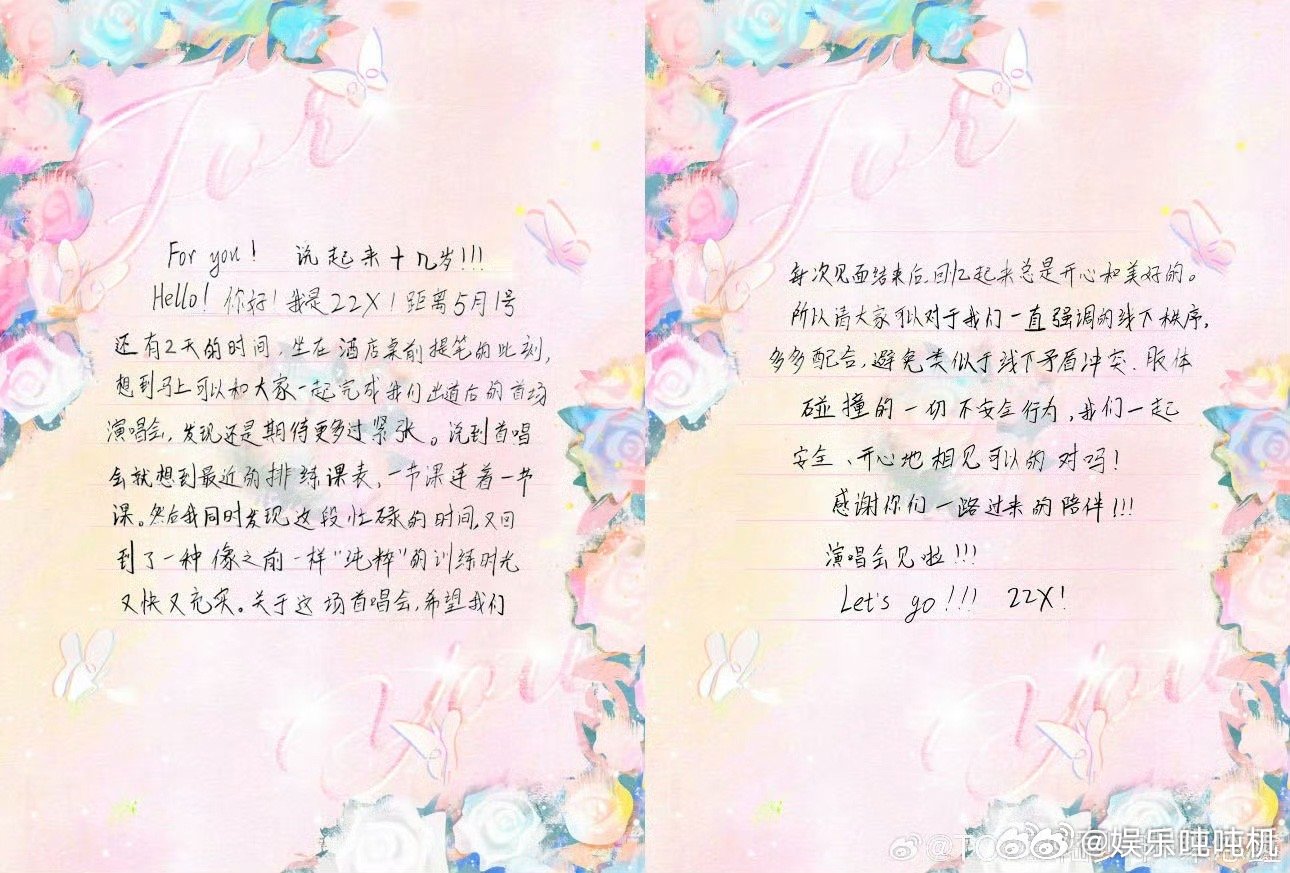 For you！ 说起来十几岁！！！
Hello！你好！我是22X！距离5月1号
还有2天的时间，坐在酒店桌前提笔的此刻，
想到马上可以和大家一起完成我们出道后的首场
演唱会，发现还是期待更多过紧张。说到首唱
会就想到最近的排练课表，一节课连着一节
课。然后我同时发现这段忙碌的时间，又回
到了一种像之前一样“纯粹”的训练时光
又快又充实。关于这场首唱会，希望我们
For
You
每次见面结束后，回忆起来总是开心和美好的。
所以请大家可以对于我们一直强调的线下秩序，
多多配合，避免类似于线下矛盾冲突、肢体
碰撞的一切不安全行为，我们一起
安全、开心地相见可以的对吗！
感谢你们一路过来的陪伴！！！
演唱会见啦！！！
Let's go！！！ 22X！
For
You
@娱乐吨吨机